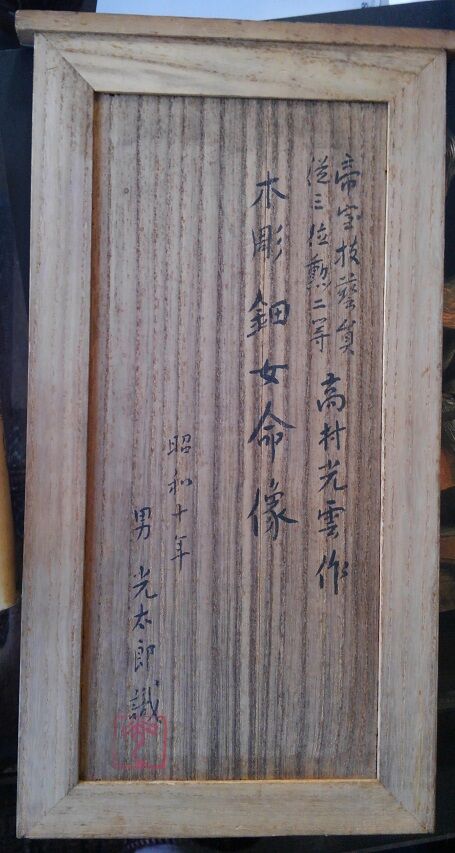 帝室技藝員
従三位勲二等 高村光雲作
木彫鈿女命像
昭和十年
男 光太郎識